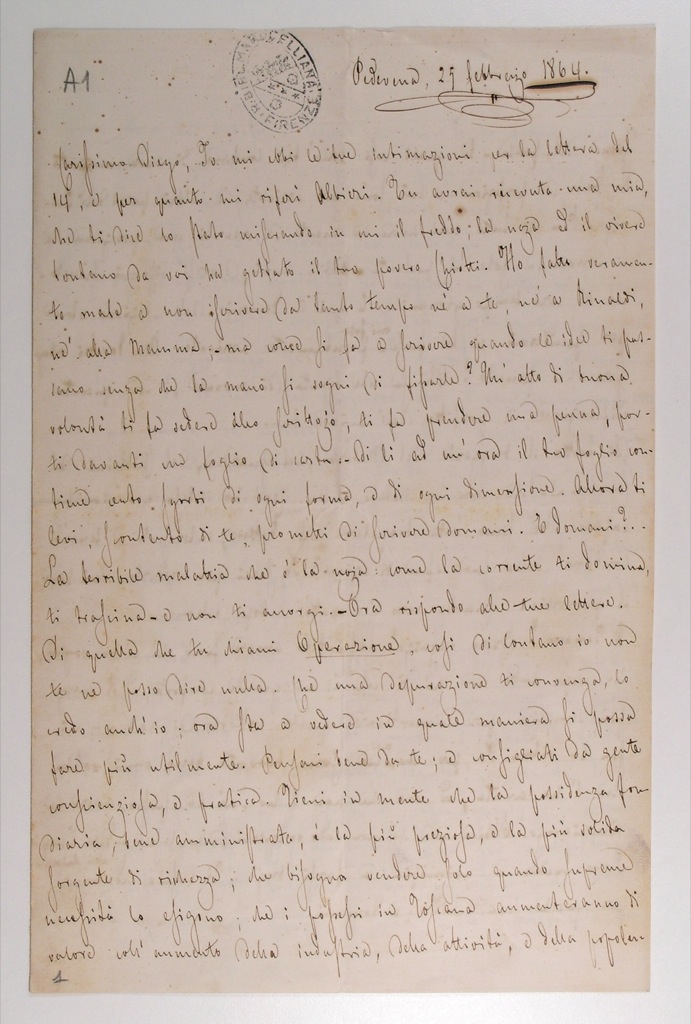 A1
R. BIBL. MARUCELLIANA FIRENZE
Pedevena, 29 febbraio 1864.
Carissimo Diego, Io mi ebbi le tue intimazioni per la lettera del
14, e per quanto mi riferì Albieri. Tu avrai ricevuta una mia,
che ti dice lo stato miserando in cui il freddo, la noja ed il vivere
lontano da voi ha gettato il tuo povero Chiotti. Ho fatto veramen-
te male a non iscrivere da tanto tempo nè a te, nè a Rinaldi,
nè alla Mamma; - ma come si fa a scrivere quando le idee ti pas-
sano senza che la mano si sogni di fissarle? Un' atto di buona
volontà ti fa sedere allo scrittojo, ti fa prendere una penna, por-
ti davanti un foglio di carta. - di lì ad un' ora il tuo foglio con-
tiene cento sgorbi di ogni forma, e di ogni dimensione. Allora ti
levi, scontento di te, prometti di scrivere domani. E domani?..
La terribile malattia che è la noja: come la corrente ti domina,
ti trascina - e non ti accorgi. - Ora rispondo alle tue lettere.
Di quella che tu chiami Operazione, così di lontano io non
te ne posso dire nulla. Che una depurazione ti convenga, lo
credo anch' io; ora sta a vedere in quale maniera si possa
fare più utilmente. Pensaci bene da te; e consigliati da gente
conscienziosa, e pratica. Tieni in mente che la possidenza fon-
diaria, bene amministrata, è la più preziosa, e la più solida
sorgente di ricchezza; che bisogna vendere solo quando supreme
necessità lo esigono; che i possessi in Toscana aumenteranno di
valore coll' aumento della industria, della attività, e della popola-
1